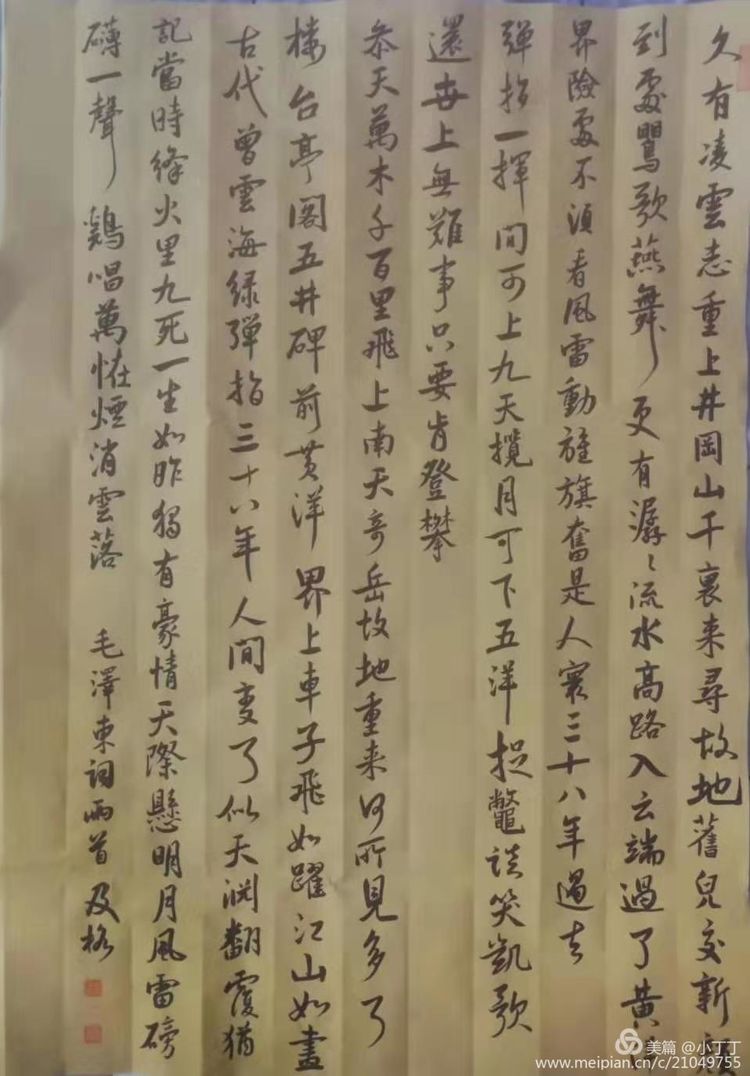 久有凌雲志重上井岡山千裏来尋故地舊皃变新颜
到處鶯歌燕舞更有潺々流水高路入云端過了黄
界險處不須看風雷動旌旗奮是人寰三十八年過去
彈指一揮間可上九天攬月可下五洋捉鼈談笑凱歌
還世上無難事只要肯登攀
参天萬木千百里飛上南天奇岳故地重来何所見多了
楼台亭閣五井碑前黄洋界上車子飛如躍江山如畫
古代曾雲海绿彈指三十八年人間变了似天渊翻覆猶
記當時烽火里九死一生如昨獨有豪情天際懸明月風雷磅
礴一聲鷄唱萬怪煙消雲落 毛澤東词两首 及格
美篇 @小丁丁
www.meipian.cn/c/21049755